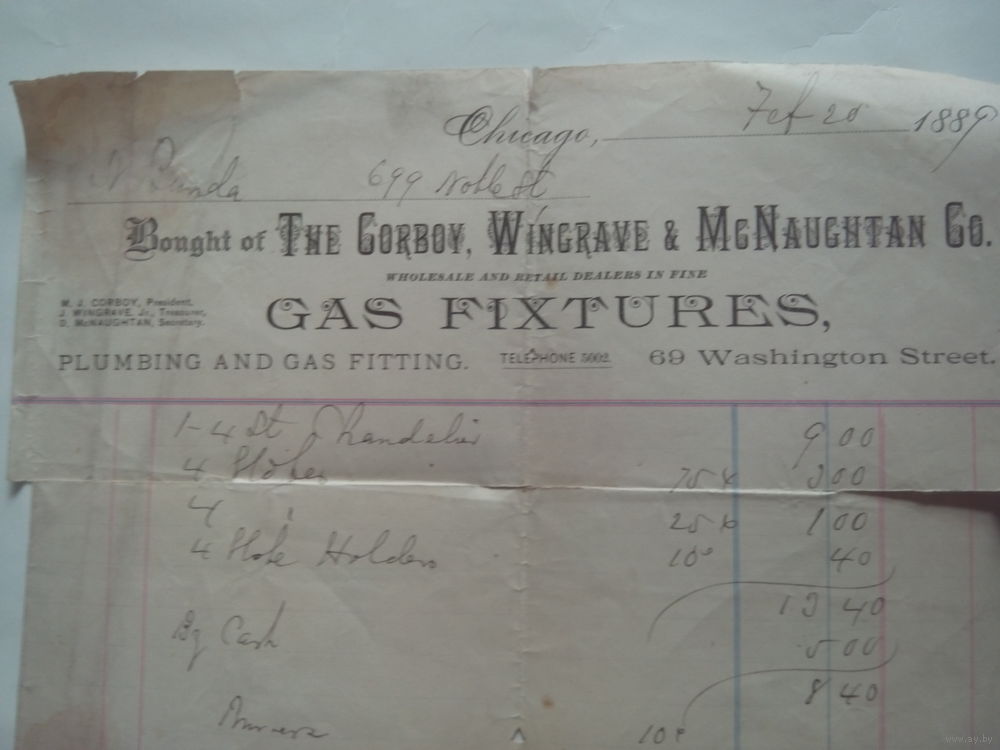 Chicago, Feb 20 1889
699 Noble St
Bought of THE CORBOY, WINGRAVE & MCNAUGHTAN CO.
WHOLESALE AND RETAIL DEALERS IN FINE
M. J. CORBOY, President.
J. WINGRAVE, Jr., Treasurer,
D. McNAUGHTAN, Secretary.
GAS FIXTURES,
PLUMBING AND GAS FITTING. TELEPHONE 5002. 69 Washington Street.
1-4 Lt Chandelier 9 00
4 Globes 75¢ 3 00
4 25¢ 1 00
4 Globe Holders 10¢ 40
13 40
By Cash 5 00
8 40
10¢
www.ay.by